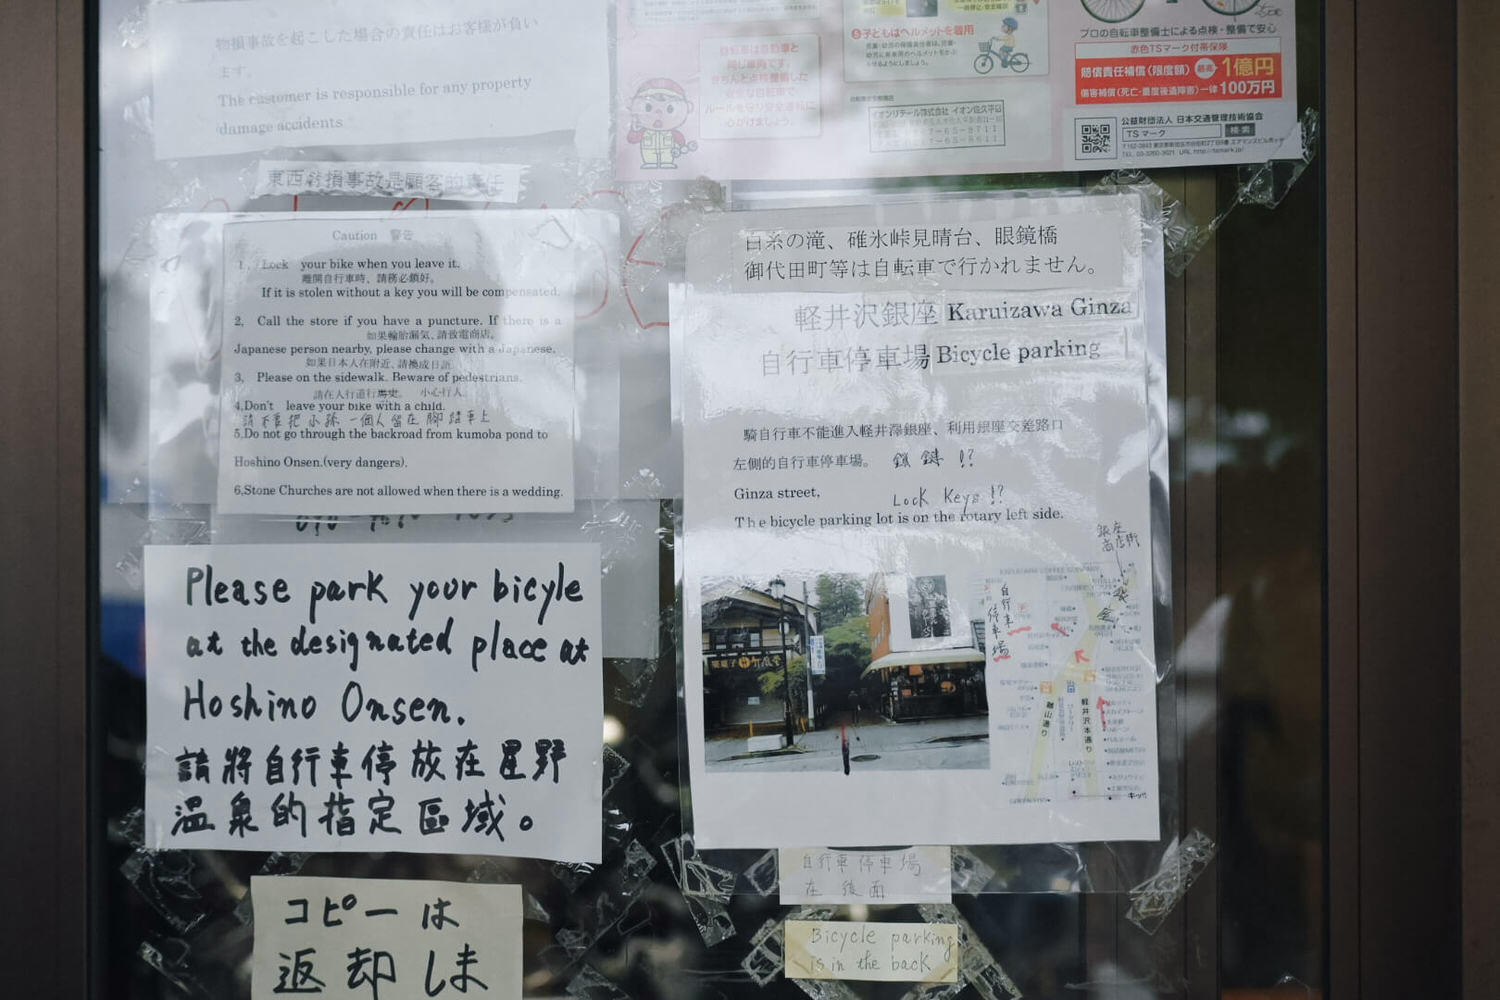 物損事故を起こした場合の責任はお客様が負い
ます。
The customer is responsible for any property
damage accidents
東西弁損事故是顧客的責任
Caution 警告
1、Lock your bike when you leave it.
離開自行車時、請務必鎖好。
If it is stolen without a key you will be compensated.
2、Call the store if you have a puncture. If there is a
如果輪胎漏気、請致電商店。
Japanese person nearby, please change with a Japanese.
如果日本人在附近、請換成日語
3、Please on the sidewalk. Beware of pedestrians.
請在人行道行 小心行人
4,Don't leave your bike with a child.
請不要把小孩一個人留在腳踏車上
5.Do not go through the backroad from kumoba pond to
Hoshino Onsen.(very dangers).
6,Stone Churches are not allowed when there is a wedding.
Please park your bicyle
at the designated place at
Hoshino Onsen.
請將自行車停放在星野
温泉的指定區域。
コピーは
返却しま
自転車は自動車と
同じ車両です。
きちんと点検整備した
安全な自転車で
ルールを守り安全運転に
心がけましょう。
⑤子どもはヘルメットを着用
イオンリテール株式会社 イオン佐久平店
プロの自転車整備士による点検・整備で安心
赤色TSマーク付帯保険
賠償責任補償(限度額) 最高 1億円
傷害補償(死亡・重度後遺障害)一律100万円
公益財団法人 日本交通管理技術協会
TS マーク 検索
白糸の滝、碓氷峠見晴台、眼鏡橋
御代田町等は自転車で行かれません。
軽井沢銀座 Karuizawa Ginza
自行車停車場 Bicycle parking
騎自行車不能進入軽井澤銀座、利用銀座交差路口
左側的自行車停車場。 鎖鍵!?
Ginza street,
Lock Keys!?
The bicycle parking lot is on the rotary left side.
銀座
商店街
自行車
停車場
離山通り
軽井沢本通り
自行車停車場
在後面
Bicycle parking
is in the back